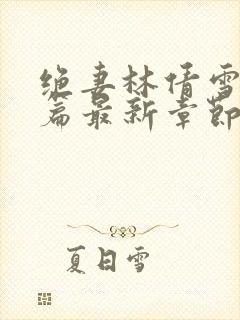 绝妻林倩雪
篇最新章节
夏日雪